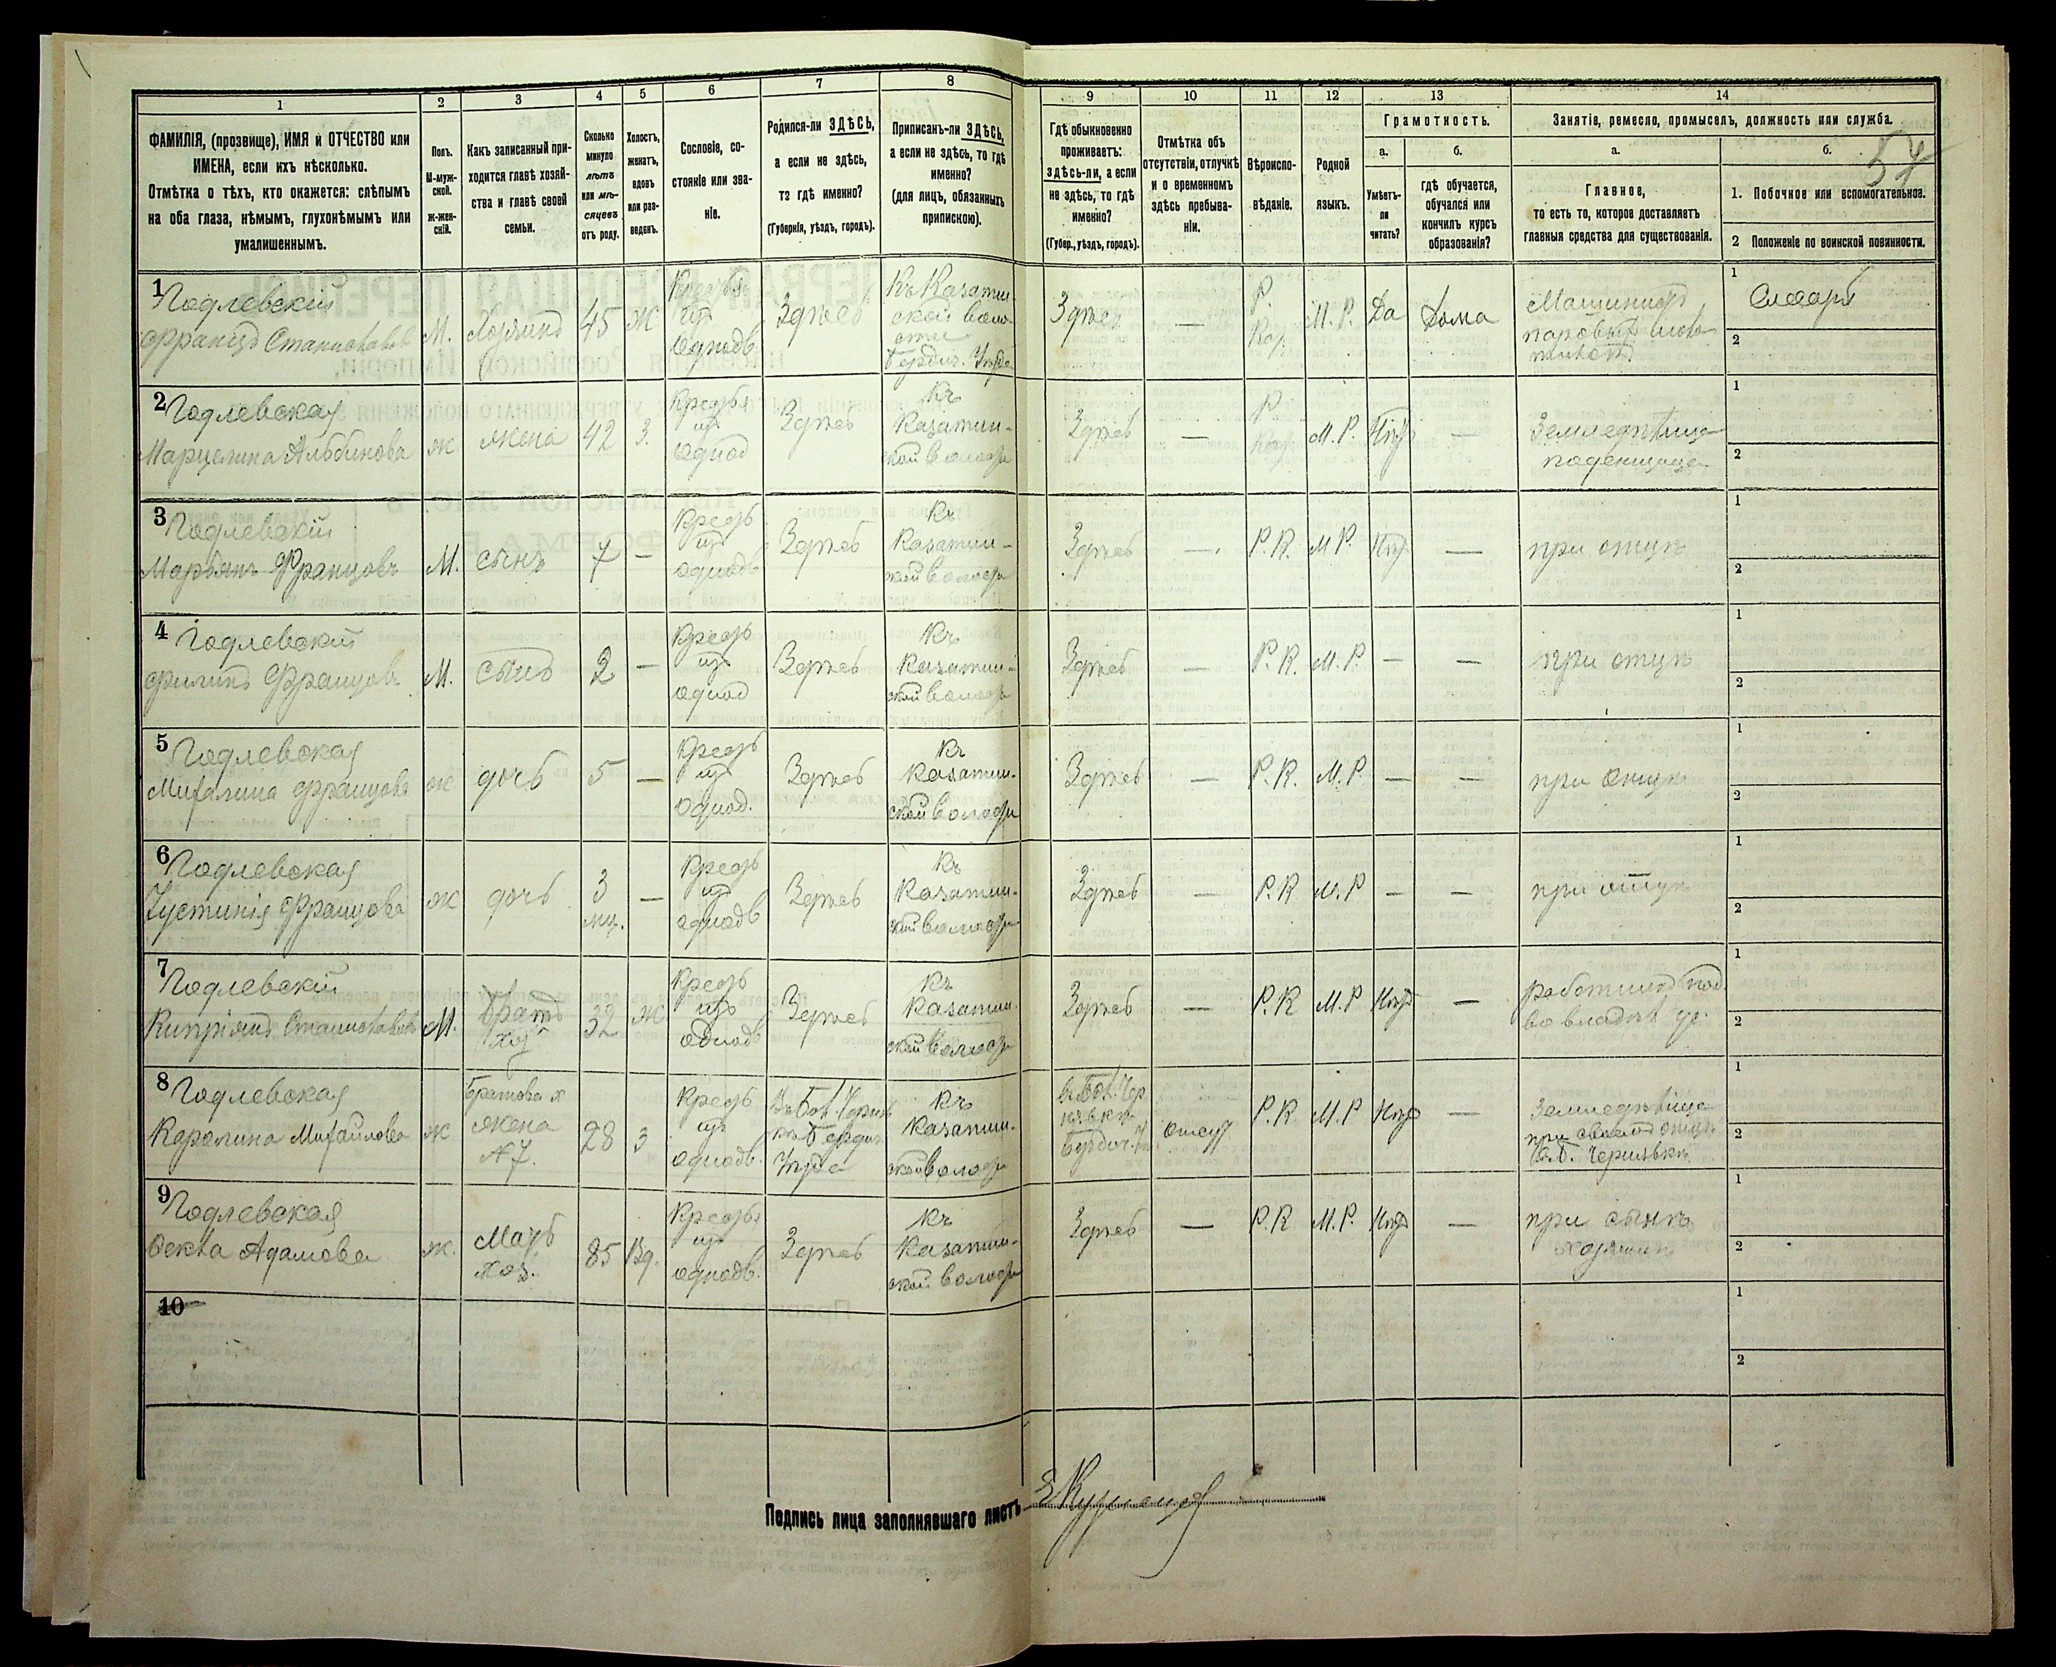 57
1 2 3 4 5 6 7 8 9 10 11 12 13 14
ФАМИЛІЯ, (прозвище), ИМЯ и ОТЧЕСТВО или
ИМЕНА, если ихъ нѣсколько.
Отмѣтка о тѣхъ, кто окажется: слѣпымъ
на оба глаза, нѣмымъ, глухонѣмымъ или
умалишеннымъ.
Полъ.
М-муж-
ской.
Ж-жен-
скій.
Какъ записанный при-
ходится главѣ хозяй-
ства и главѣ своей
семьи.
Сколько
минуло
лѣтъ
или мѣ-
сяцевъ
отъ роду.
Холостъ,
женатъ,
вдовъ
или раз-
веденъ.
Сословіе, со-
стояніе или зва-
ніе.
Родился-ли ЗДѢСЬ,
а если не здѣсь,
то гдѣ именно?
(Губернія, уѣздъ, городъ).
Приписанъ-ли ЗДѢСЬ,
а если не здѣсь, то гдѣ
именно?
(для лицъ, обязанныхъ
припискою).
Гдѣ обыкновенно
проживаетъ:
здѣсь-ли, а если
не здѣсь, то гдѣ
именно?
(Губер., уѣздъ, городъ).
Отмѣтка объ
отсутствіи, отлучкѣ
и о временномъ
здѣсь пребыва-
ніи.
Вѣроиспо-
вѣданіе.
Родной
языкъ.
Грамотность.
а.
Умѣетъ-
ли
читать?
б.
гдѣ обучается,
обучался или
кончилъ курсъ
образованія?
Занятіе, ремесло, промыселъ, должность или служба.
а.
Главное,
то есть то, которое доставляетъ
главныя средства для существованія.
б.
1. Побочное или вспомогательное.
2 Положеніе по воинской повинности.
1 Годлевскій
Францъ Станиславовъ
М. Хозяинъ 45 Ж
Крестья
изъ
Однодв.
Здѣсь
Къ Казатин-
ской воло-
сти
Бердич. Уѣзда
Здѣсь — Р. Кат. М. Р. Да Дома
Машинистъ
паровыхъ
Слесарь
1
2
2 Годлевская
Марцелина Альбинова
ж жена 42 З.
Крестья
изъ
однод
Здѣсь
Къ
Казатин-
ской волости
Здѣсь — Р. Кат. М. Р. Нѣтъ —
Земледѣлица
поденщица
1
2
3 Годлевскій
Марьянъ Францовъ
М. сынъ 7 —
Крест
изъ
однодв
Здѣсь
Къ
Казатин-
ской волости
Здѣсь — Р. К. М Р. Нѣт —
при отцѣ
1
2
4 Годлевскій
Филипъ Францовъ
М. сынъ 2 —
Крест
изъ
однод
Здѣсь
Къ
Казатин-
ской волости
Здѣсь — Р. К. М. Р. — —
при отцѣ
1
2
5 Годлевская
Михалина Францова
ж дочь 5 —
Крест
изъ
однод.
Здѣсь
Къ
Казатин-
ской волости
Здѣсь — Р. К. М. Р. — —
при отцѣ
1
2
6 Годлевская
Устинія Францова
ж дочь 3 мц. —
Крест
изъ
однодв
Здѣсь
Къ
Казатин-
ской волости
Здѣсь — Р. К М. Р — —
при отцѣ
1
2
7 Годлевскій
Кипріянъ Станиславовъ
М. братъ
хоз
32 Ж
Крест
изъ
однодв
Здѣсь
Къ
Казатин.
ской волости
Здѣсь — Р. К М. Р Нѣт —
работникъ
1
2
8 Годлевская
Каролина Михайлова
ж
Братова
жена
№ 7.
28 З
Крест
изъ
однодв.
Бердич
Уѣзда
Къ
Казатин.
ской волости
Бердич. У.
отсут
Р. К. М. Р Нѣт —
Земледѣлица
при своемъ отцѣ
1
2
9 Годлевская
Фекла Адамова
ж. Мать
хоз.
85 Вд.
Крестья
изъ
однодв.
Здѣсь
Къ
Казатин-
ской волости
Здѣсь — Р. К М. Р. Нѣт —
при сынѣ
хозяинѣ
1
2
10
1
2
Подпись лица заполнявшаго листъ